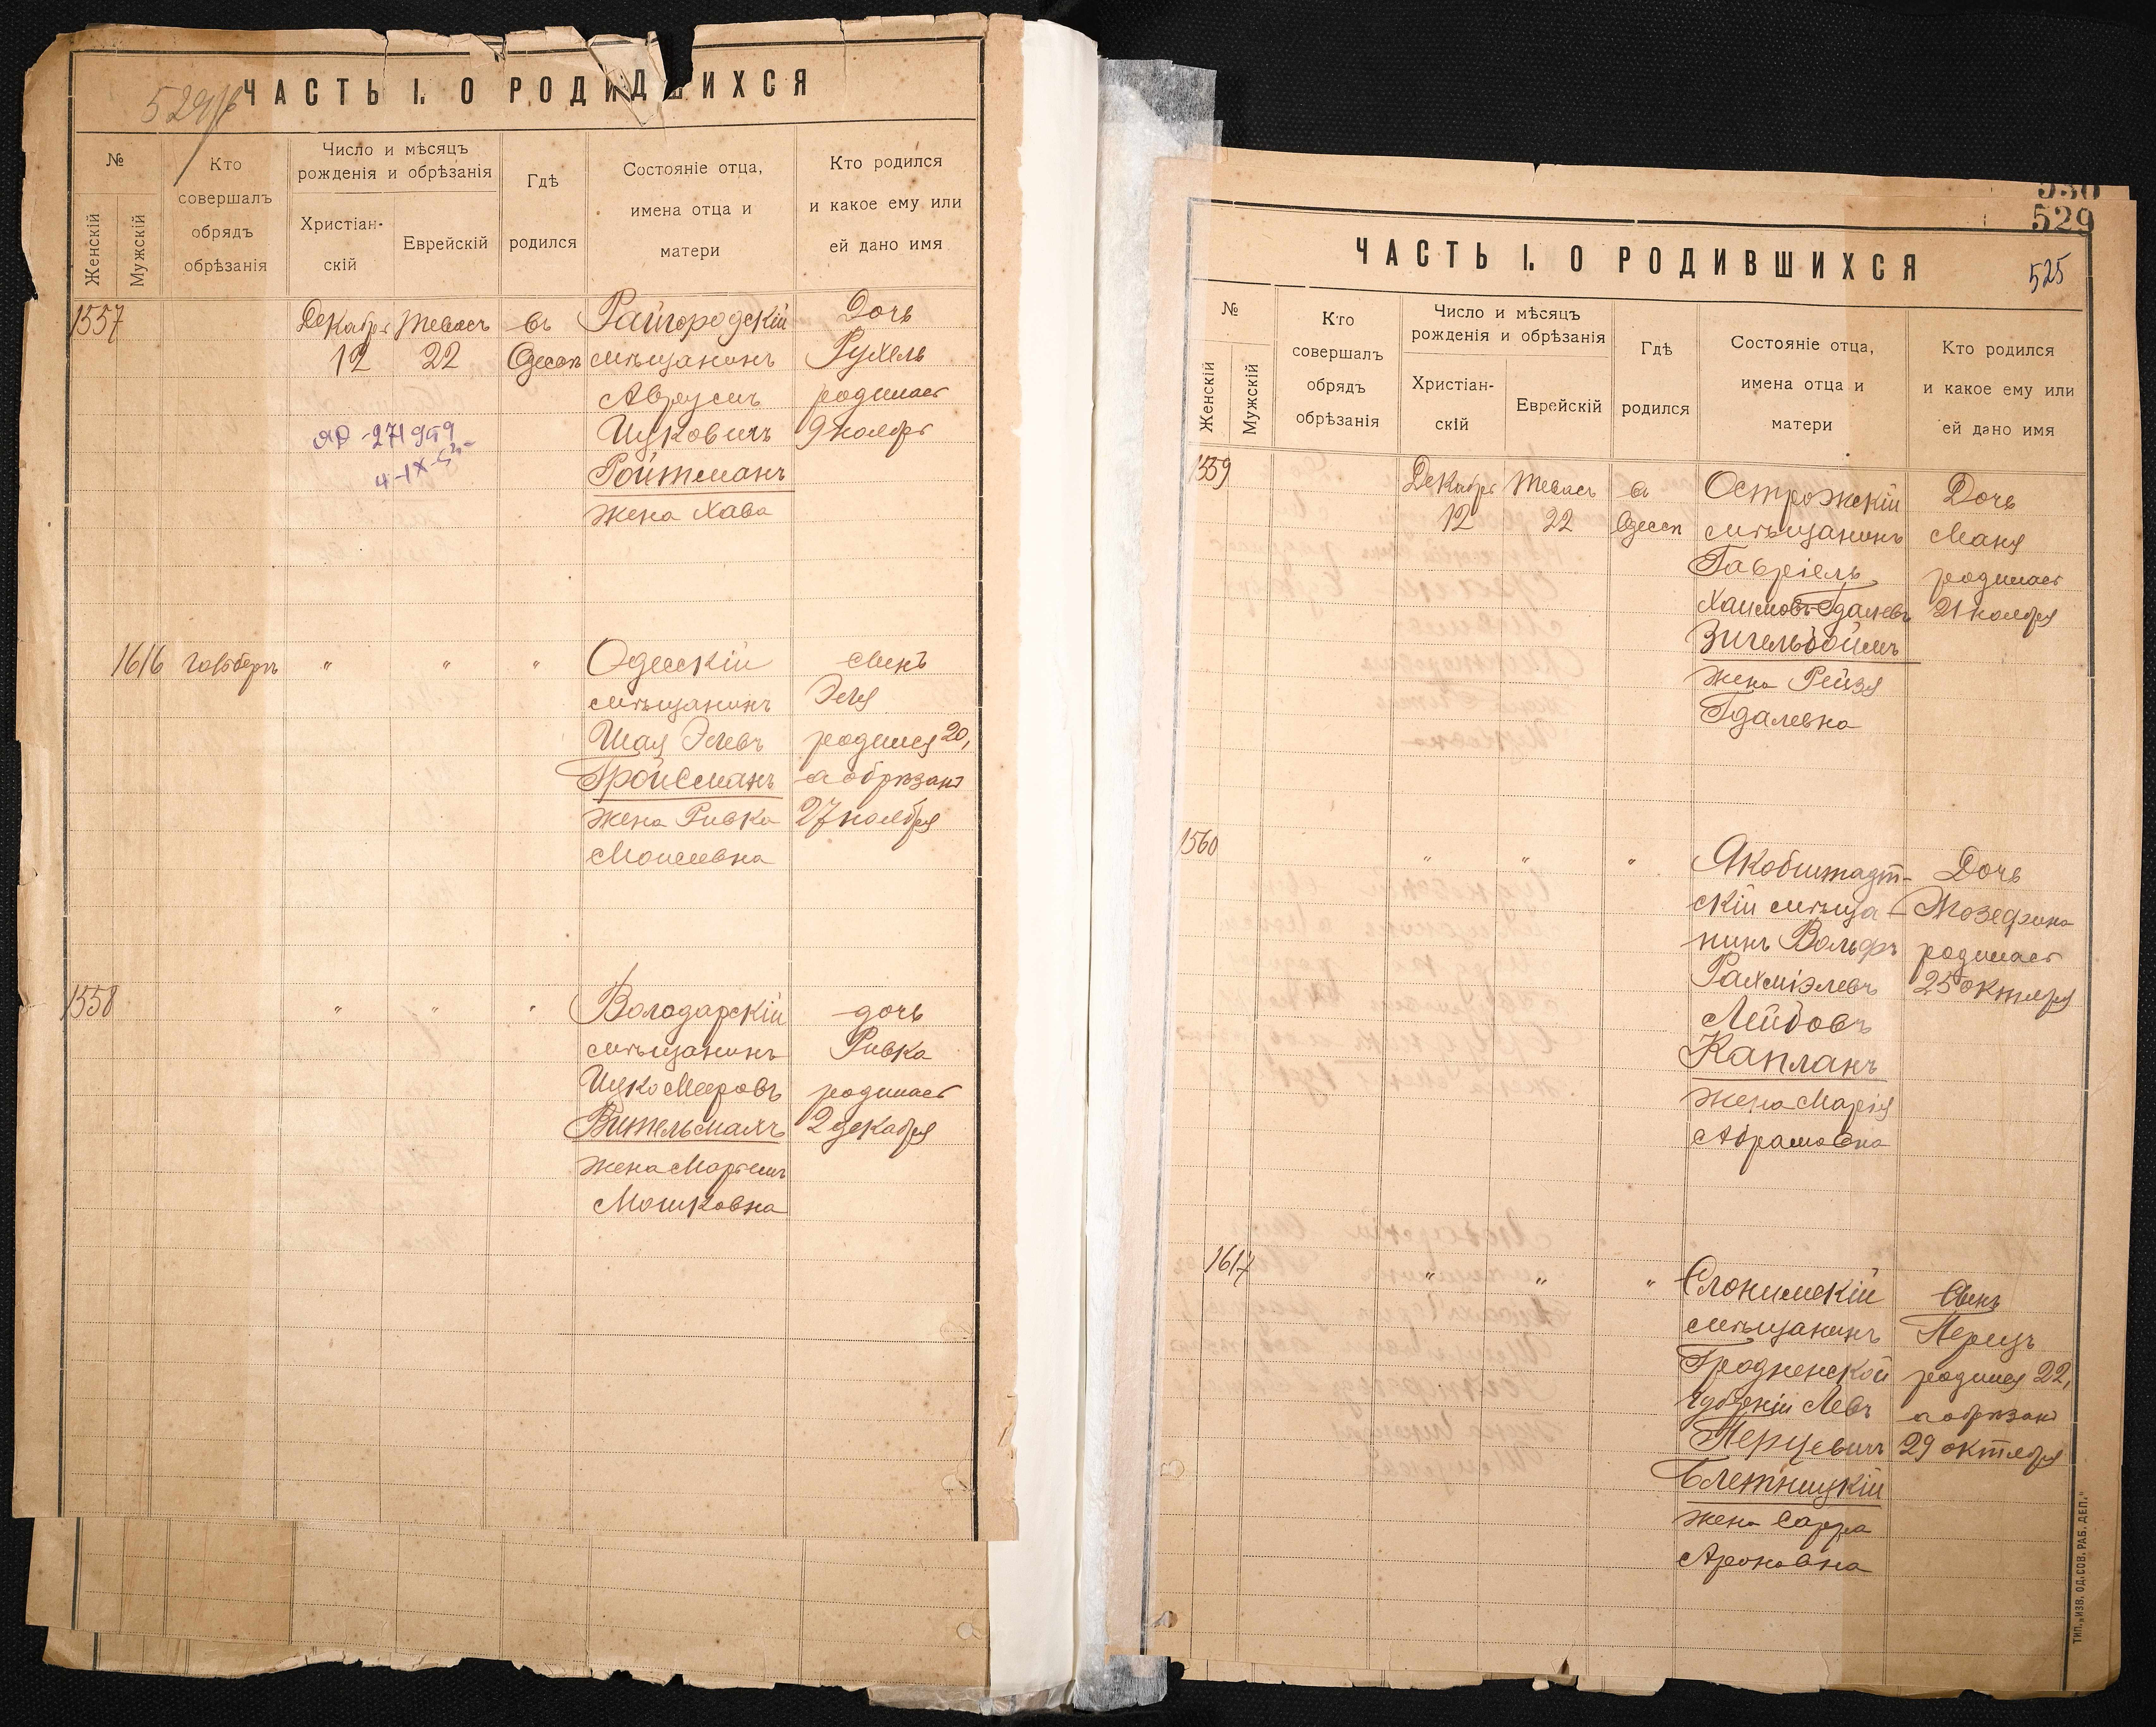 529/б
ЧАСТЬ I. О РОДИВШИХСЯ
№
Женскій
Мужскій
Кто
совершалъ
обрядъ
обрѣзанія
Число и мѣсяцъ
рожденія и обрѣзанія
Христіан-
скій
Еврейскій
Гдѣ
родился
Состояніе отца,
имена отца и
матери
Кто родился
и какое ему или
ей дано имя
1557
Декабрь
12
Тевась
22
въ
Одессѣ
Райгородскій
мѣщанинъ
Ицковичъ
Ройтманъ
жена Хава
Дочь
Рухель
родилась
9 ноября
1616
"
"
"
Одесскій
мѣщанинъ
Шая Элевъ
Гройсманъ
жена Ривка
Моисеевна
сынъ
Эля
родился 20,
а обрѣзанъ
27 ноября
1558
"
"
"
Володарскій
мѣщанинъ
Ицко Мееровъ
Вительмахъ
жена
Мошковна
дочь
Ривка
родилась
2 декабря
530
529
525
ЧАСТЬ I. О РОДИВШИХСЯ
№
Женскій
Мужскій
Кто
совершалъ
обрядъ
обрѣзанія
Число и мѣсяцъ
рожденія и обрѣзанія
Христіан-
скій
Еврейскій
Гдѣ
родился
Состояніе отца,
имена отца и
матери
Кто родился
и какое ему или
ей дано имя
1559
Декабрь
12
Тевась
22
въ
Одессѣ
Острожскій
мѣщанинъ
Гавріель
Хаимовъ-Гдалевъ
Зигельбоймъ
жена Рейзя
Гдалевна
Дочь
Маня
родилась
21 ноября
1560
"
"
"
Якобштадт-
скій мѣща-
нинъ Вольфъ
Рахміэлевъ
Лейбовъ
Капланъ
жена Марія
Абрамовна
Дочь
Жозефина
родилась
25 октября
1617
"
"
"
Слонимскій
мѣщанинъ
Гродненской
губерніи Левъ
Перцевичъ
Блетницкій
жена Сарра
Ароновна
Сынъ
Перецъ
родился 22,
а обрѣзанъ
29 октября
ТИП. „ИЗВ. ОД. СОВ. РАБ. ДЕП."